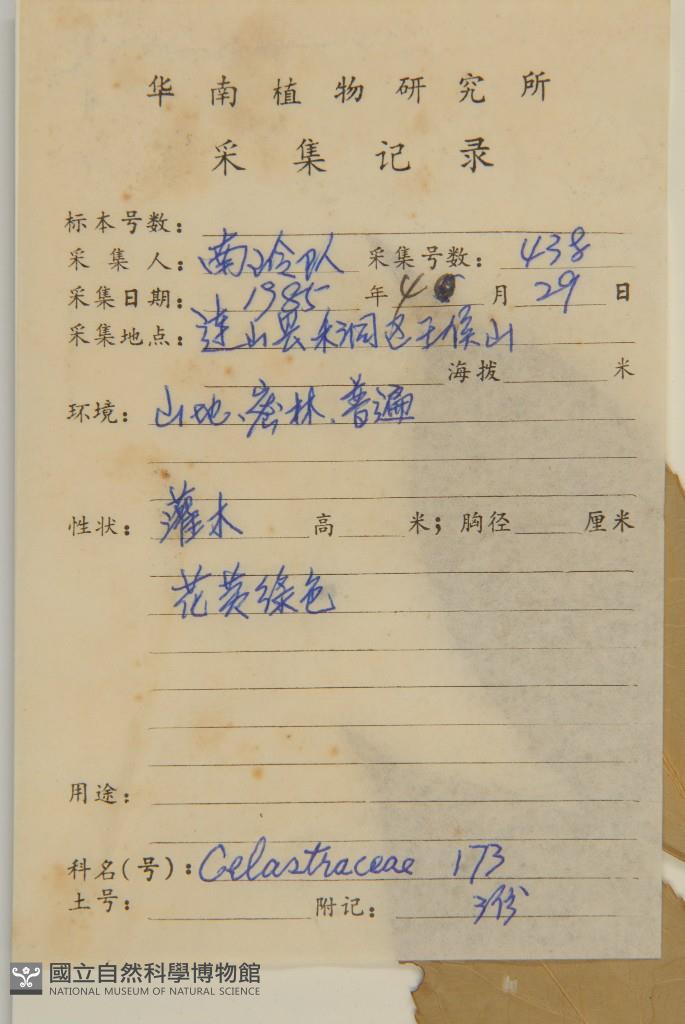 华南植物研究所
采集记录
标本号数：
采集人：南玲队 采集号数：438
采集日期：1985年4月29日
采集地点：连山县禾洞区王侯山
海拨 米
环境：山地、密林、普遍
性状：灌木 高 米；胸径 厘米
花黄绿色
用途：
科名(号)：Celastraceae 173
土号： 附记：3份
國立自然科學博物館
NATIONAL MUSEUM OF NATURAL SCIENCE